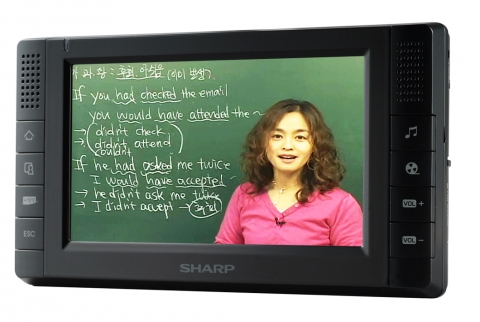 가정법 : 후회·아쉬움 (이미 발생)
If you had checked the email
you would have attended the ~
→ didn't check
→ didn't attend
couldn't
If he had asked me twice
I would have accepted
→ he didn't ask me twice
→ I didn't accept →
ESC
VOL +
VOL −
SHARP